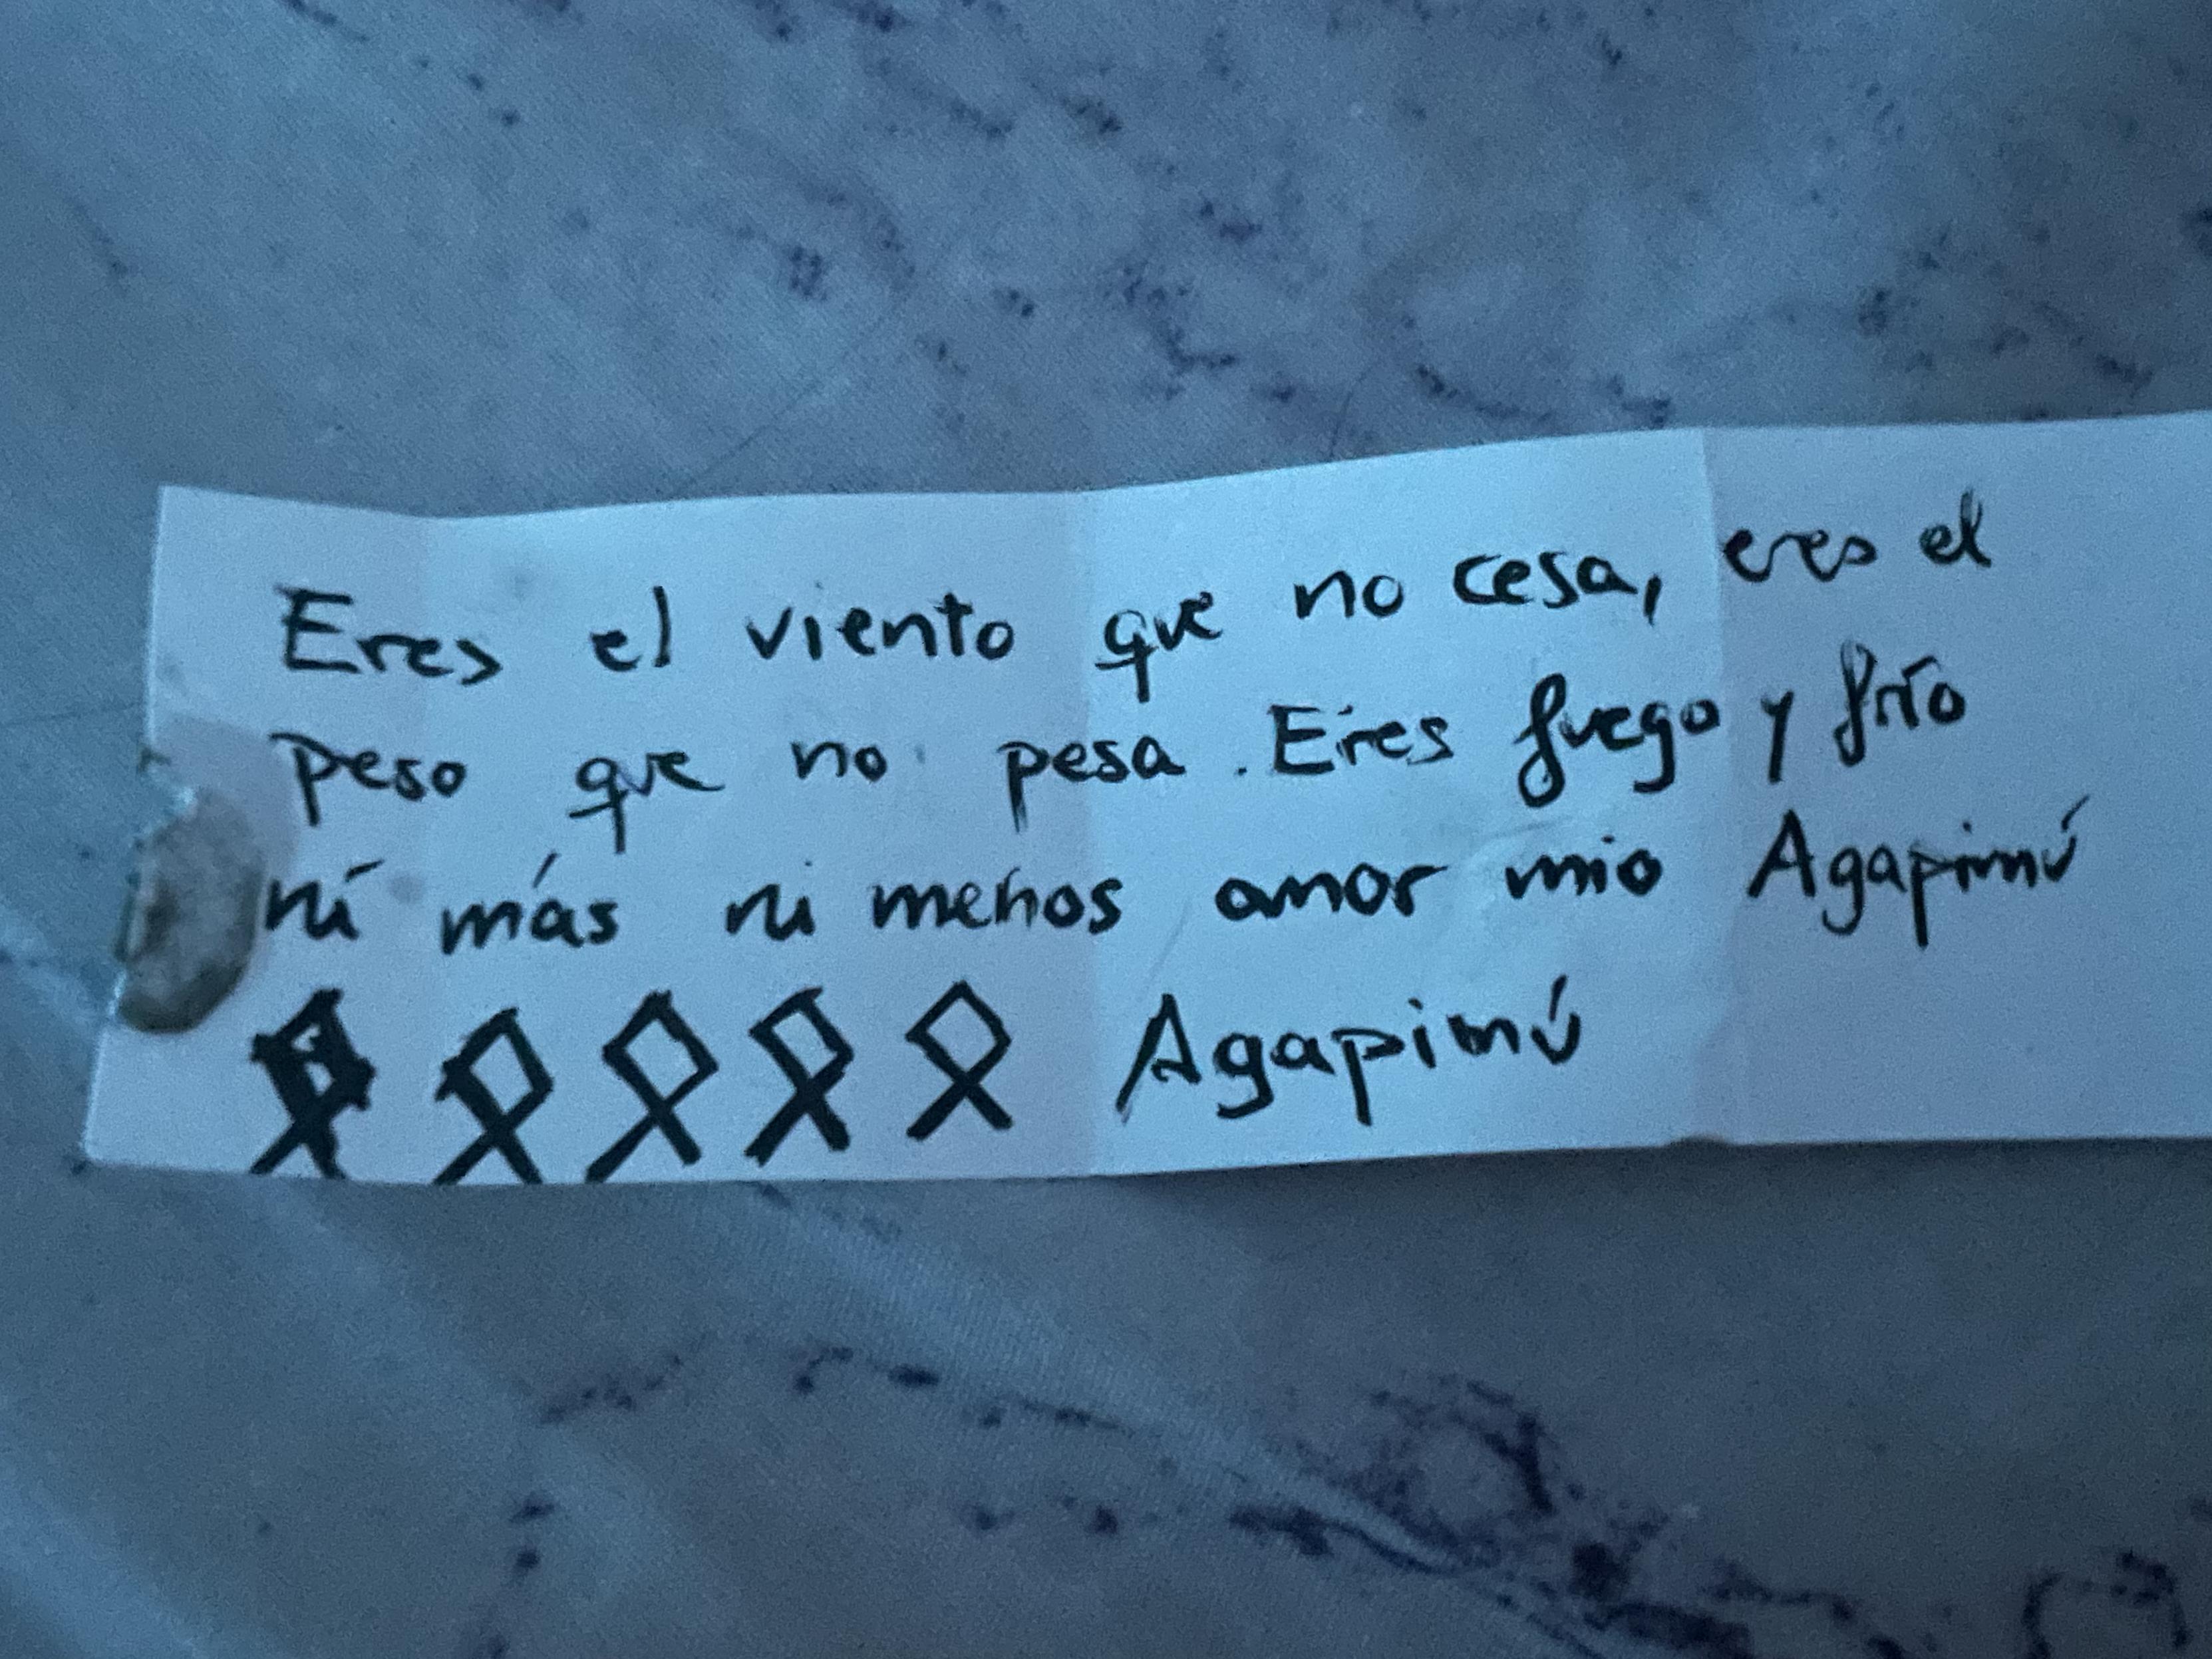 Eres el viento que no cesa, eres el
peso que no pesa. Eres fuego y frío
ni más ni menos amor mio Agapimú
ᛟ ᛟ ᛟ ᛟ ᛟ Agapimú